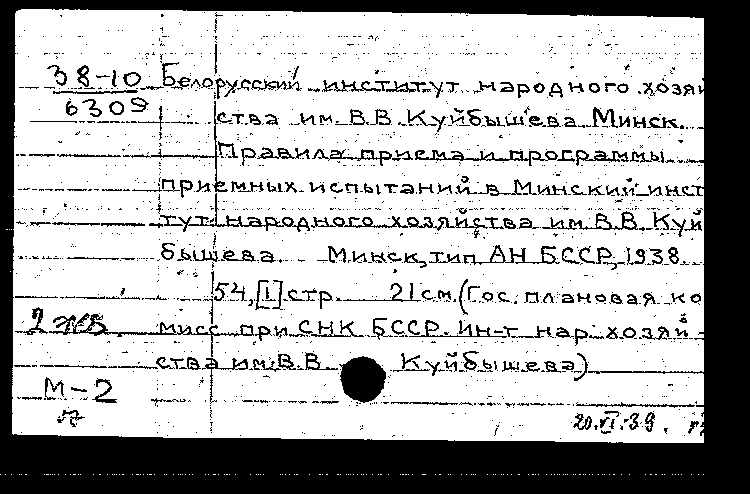 38-10 Белорусский институт народного хозяй
6309 ства им. В.В. Куйбышева Минск.
Правила приема и программы
приемных испытаний в Минский инст
тут народного хозяйства им. В.В. Куй
бышева. Минск, тип. АН БССР, 1938.
54, [1] стр. 21 см. (Гос. плановая ко
2 экз. мисс при СНК БССР. Ин-т нар. хозяй-
ства им. В.В. Куйбышева)
М-2
20.VI.39.